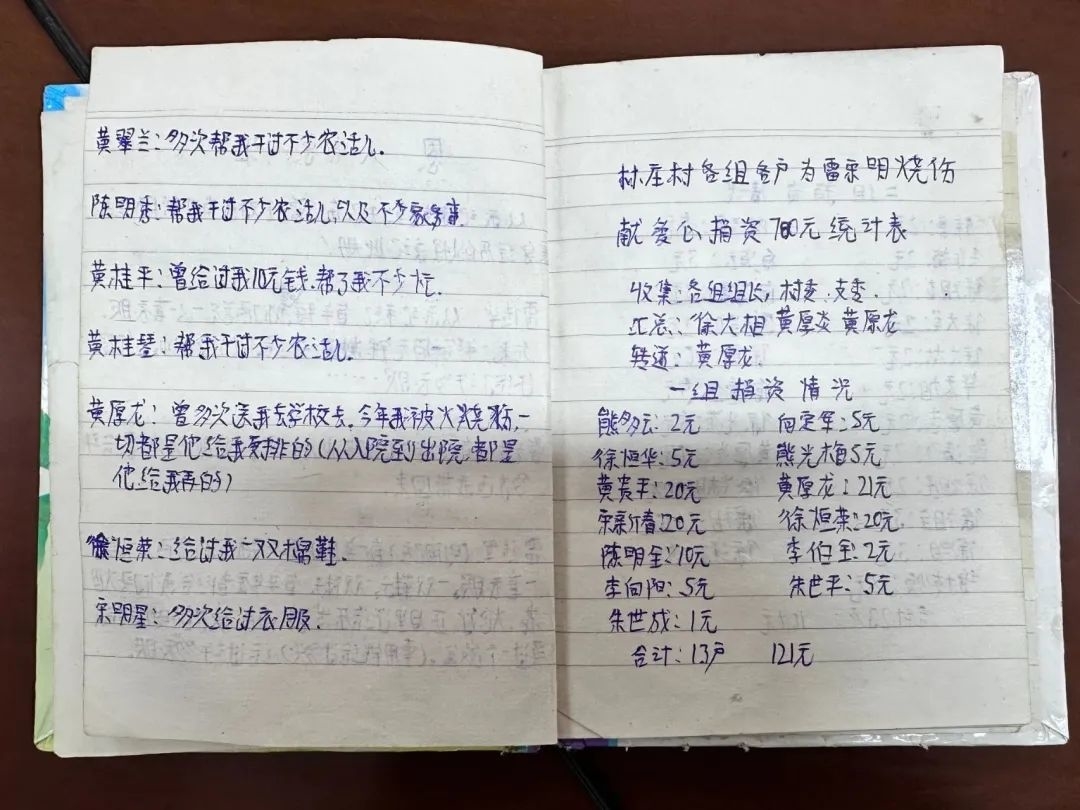 黄翠兰:多次帮我干过不少农活儿.
陈明秀:帮我干过不少农活儿以及不少家务事.
黄桂平:曾给过我10元钱.帮了我不少忙.
黄桂琴:帮我干过不少农活儿.
黄厚龙:曾多次送我去学校去.今年我被火烧伤,一
切都是他给我安排的(从入院到出院都是
他给我弄的)
徐恒荣:给过我一双棉鞋.
宋明星:多次给过衣服.
林庄村各组各户为雷宗明烧伤
献爱心捐资700元统计表
收集:各组组长,村委.支委.
汇总:徐大相 黄厚炎 黄厚龙
转递:黄厚龙.
一组捐资情况
熊多云:2元 向定军:5元
徐恒华:5元 熊光梅5元
黄贵平:20元 黄厚龙:21元
宋新春:20元 徐恒荣:20元.
陈明全:10元 李伯全:2元
李向阳:5元 朱世平:5元
朱世成:1元
合计:13户 121元